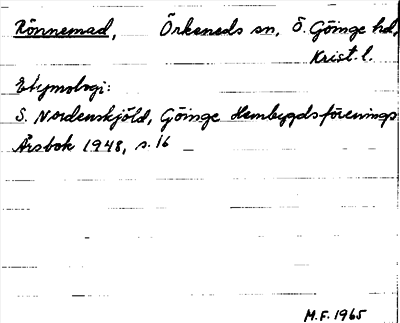 Rönnemad, Örkeneds sn, Ö. Göinge hd,
Krist. l.
Etymologi:
S. Nordenskjöld, Göinge Hembygdsförenings
Årsbok 1948, s. 16
M.F. 1965